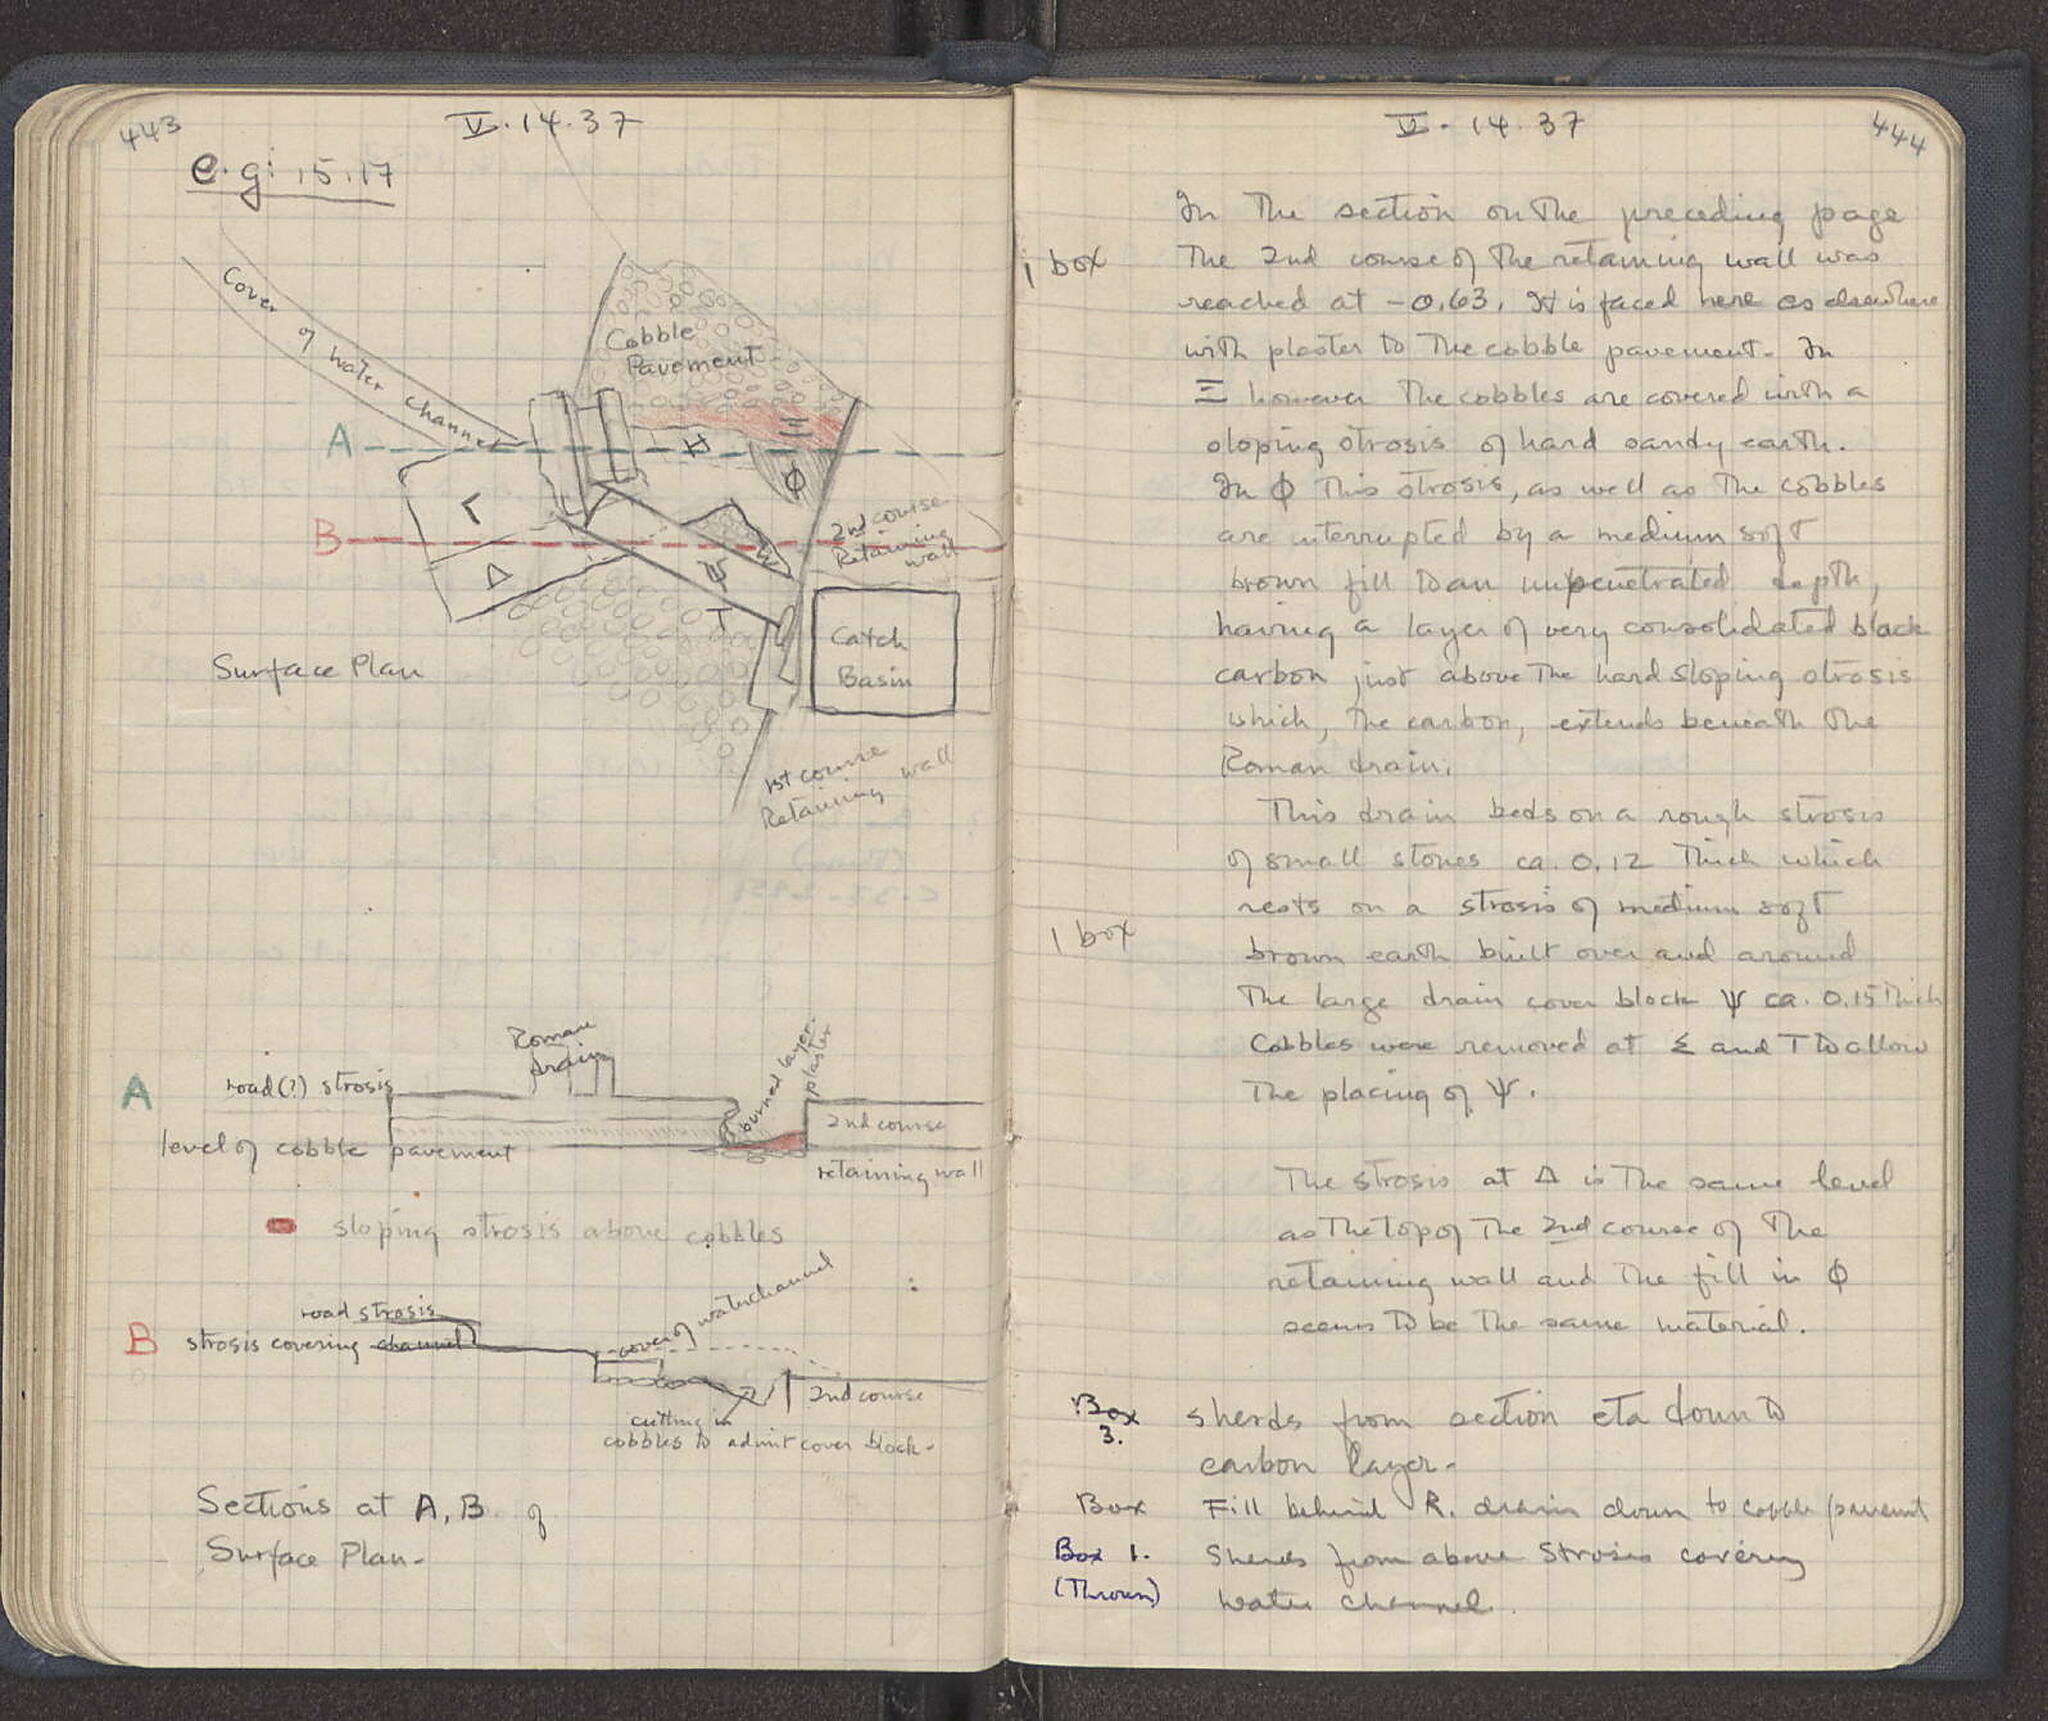 443
V.14.37
e.g: 15.17
Cover of water channel
Cobble
Pavement
A
H
Ξ
Φ
Γ
B
2nd course
Retaining
wall
Δ
Ψ
Σ
T
Catch
Basin
Surface Plan
1st course
Retaining wall
Roman
drain
burned layer.
plaster
A
road(?) strosis
2nd course
level of cobble pavement
retaining wall
sloping strosis above cobbles
cover of waterchannel
road strosis
B
strosis covering channel
2nd course
cutting in
cobbles to admit cover block-
Sections at A, B of
Surface Plan-
V. 14. 37
444
In The section on The preceding page
1 box
The 2nd course of The retaining wall was
reached at -0.63. It is faced here as elsewhere
with plaster to The cobble pavement. In
Ξ however The cobbles are covered with a
sloping strosis of hard sandy earth.
In Φ This strosis, as well as The cobbles
are interrupted by a medium soft
brown fill to an unpenetrated depth,
having a layer of very consolidated black
carbon just above The hard sloping strosis
which, The carbon, extends beneath The
Roman drain.
This drain beds on a rough strosis
of small stones ca. 0.12 Thick which
rests on a strosis of medium soft
1 box
brown earth built over and around
The large drain cover block Ψ ca. 0.15 Thick
Cobbles were removed at Σ and T to allow
The placing of Ψ.
The strosis at Δ is The same level
as The top of The 2nd course of The
retaining wall and The fill in Φ
seems to be The same material.
Box
3.
sherds from section eta down to
carbon layer-
Box
Fill behind R. drain down to cobble pavemt
Box 1.
(Thrown)
Sherds from above Strosis covering
water channel.